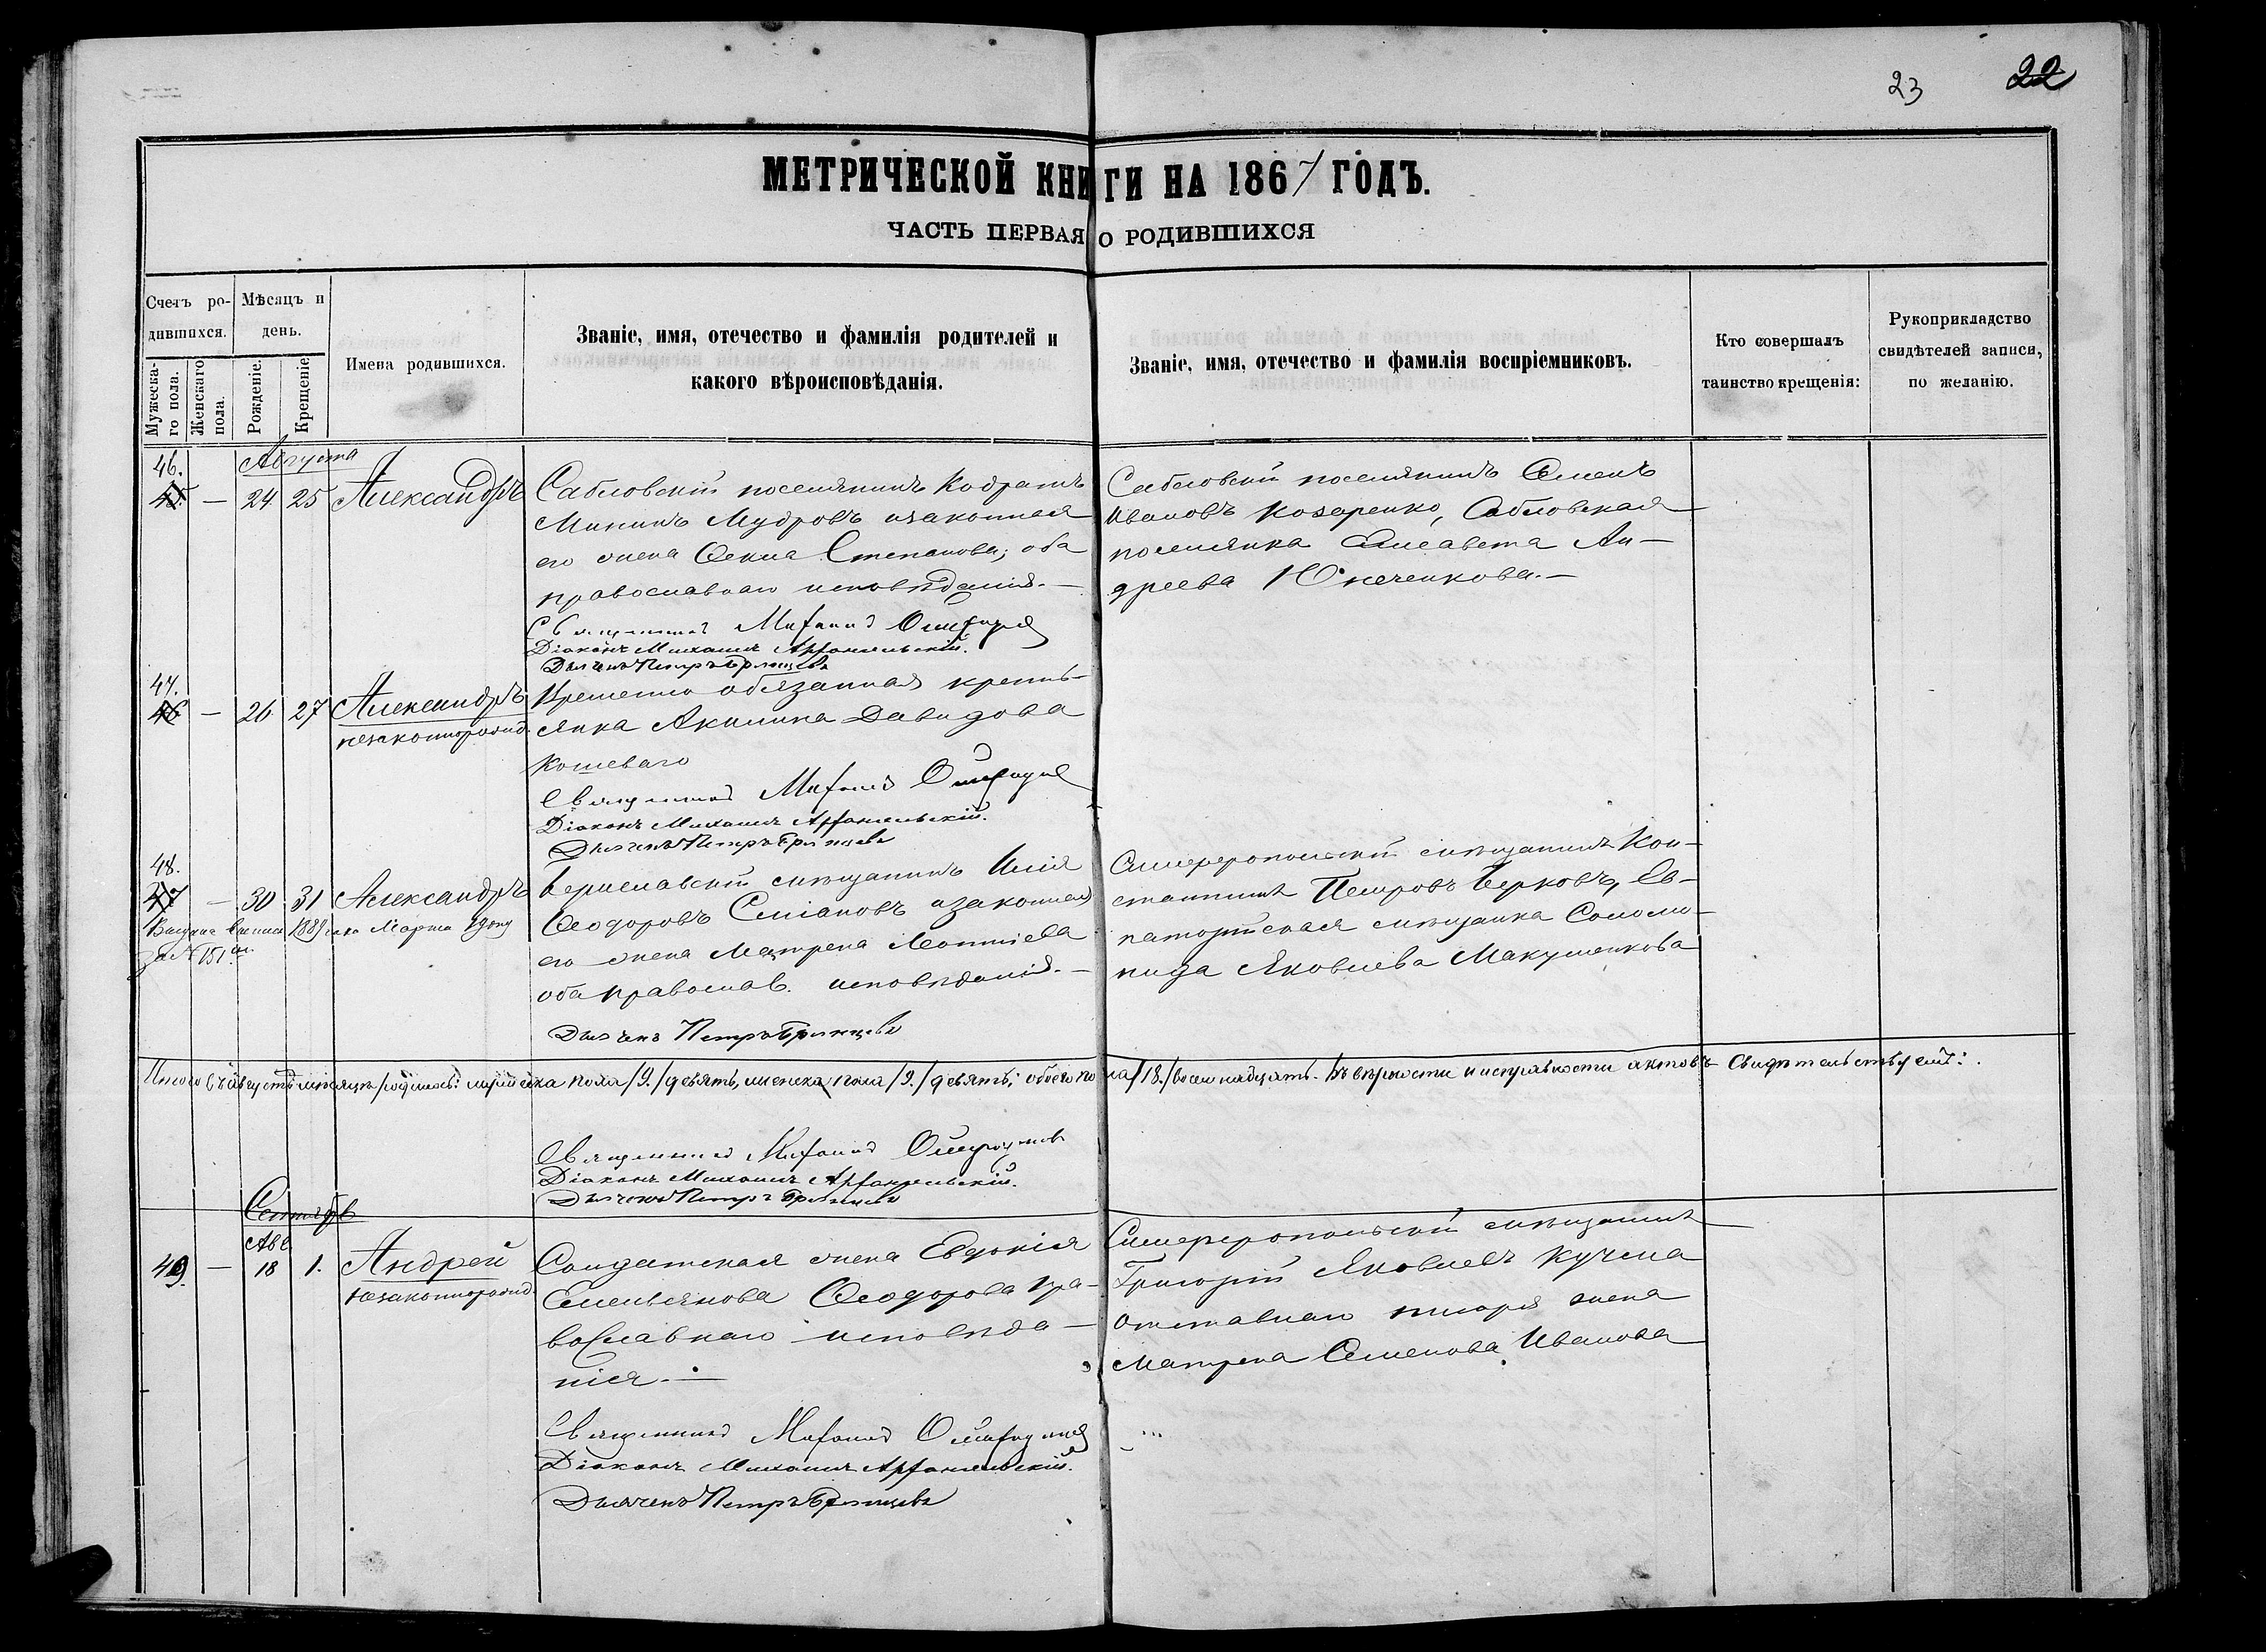 23 22
МЕТРИЧЕСКОЙ КНИГИ НА 1867 ГОДЪ.
ЧАСТЬ ПЕРВАЯ О РОДИВШИХСЯ
Счетъ родившихся.
Мужескаго пола.
Женскаго пола.
Мѣсяцъ и день.
Рожденіе.
Крещеніе.
Имена родившихся.
Званіе, имя, отечество и фамилія родителей и
какого вѣроисповѣданія.
Званіе, имя, отечество и фамилія воспріемниковъ.
Кто совершалъ
таинство крещенія:
Рукоприкладство
свидѣтелей записи,
по желанію.
Августа
46.
45. — 24 25 Александръ
Сабловскій поселянинъ Кодратъ
Мининъ Мудровъ изаконная
его жена Фекла Степанова; оба
православнаго исповѣданія. —
Священникъ
Діаконъ Михаилъ Архангельскій.
Дьячекъ Петръ
Сабловскій поселянинъ Семенъ
Ивановъ Козаренко, Сабловская
поселянка Елисавета Ан—
дреева —
47.
46 — 26 27 Александръ
незаконнорожд.
Временно обязанная крестьянка Акилина Давидова
Кошеваго
Священникъ
Діаконъ Михаилъ Архангельскій.
Дьячекъ Петръ
48.
47 — 30 31 Александръ
1889 Марта
за № 151
Бериславскій мѣщанинъ Илія
Ѳеодоровъ изаконная
его жена Матрена Леонтіева
оба православ. исповѣданія. —
Дьячекъ Петръ
Симферопольскій мѣщанинъ Кон—
стантинъ Петровъ Ев—
паторійская мѣщанка Соломо—
нида Яковлева
Итого въ Августѣ мѣсяцѣ родилось: мужеска пола /9./ девять, женска пола /9./ девять; обоего пола /18./ восемнадцать. Въ вѣрности и исправности актовъ свидѣтельствуемъ:
Священникъ
Діаконъ Михаилъ Архангельскій.
Дьячекъ Петръ
Сентябрь
Авг.
49. — 18 1. Андрей
незаконнорожд.
Солдатская жена Евдокія
Емельянова Ѳеодорова пра—
вославнаго исповѣда—
нія. —
Священникъ
Діаконъ Михаилъ Архангельскій.
Дьячекъ Петръ
Симферопольскій мѣщанинъ
Григорій Яковлевъ Кучма
отставнаго писаря жена
Матрена Семенова Иванова